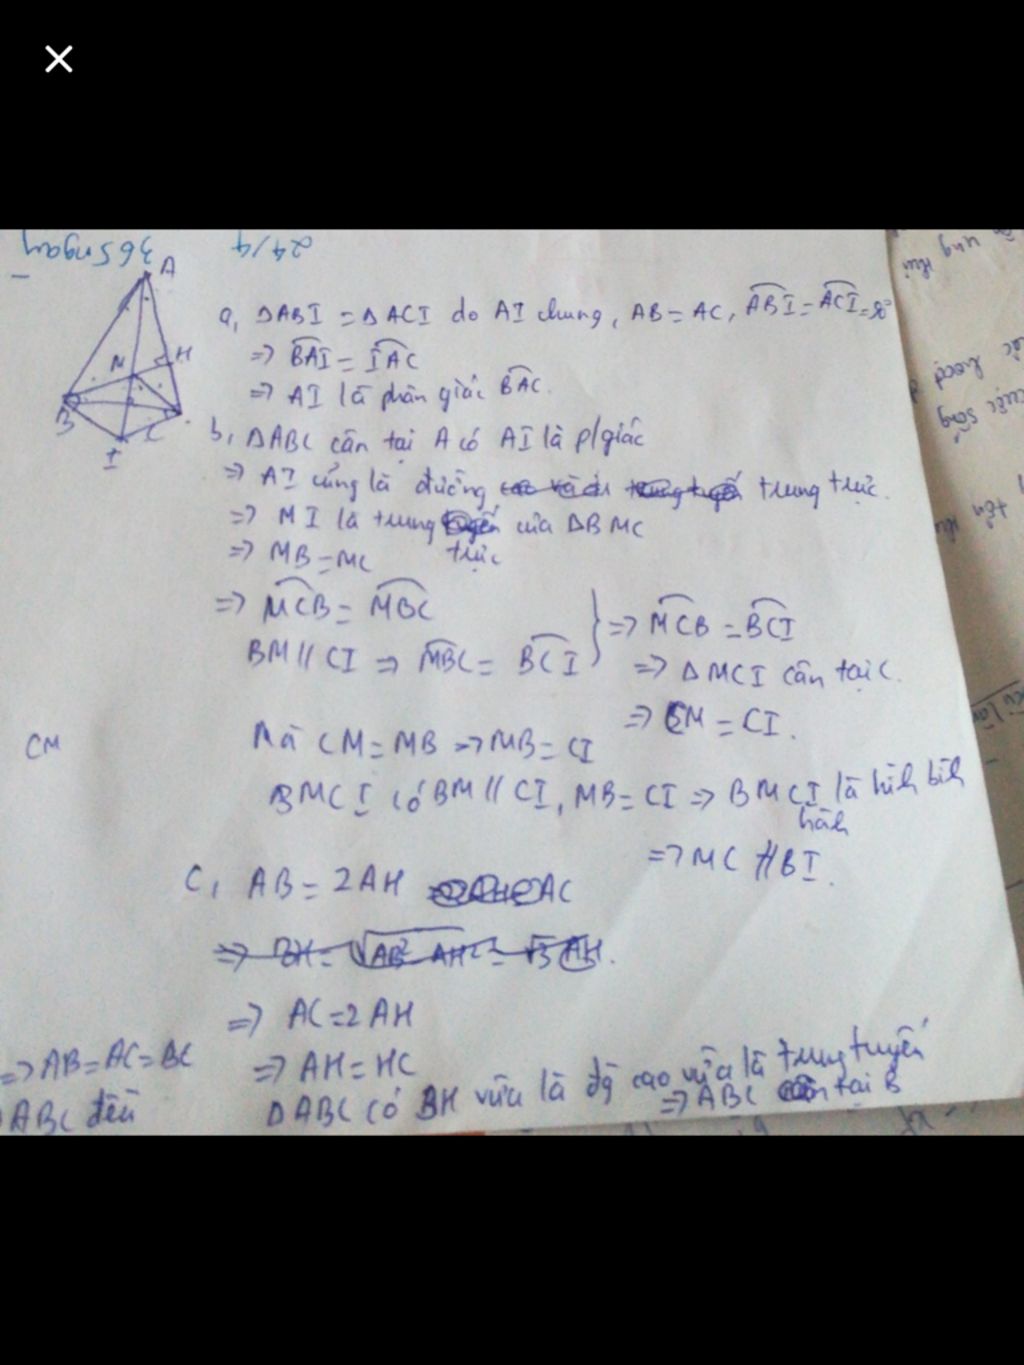 24/4
365 ngày
A
M
H
B
C
I
a, ΔABI = ΔACI do AI chung, AB = AC, ABI = ACI = 90°
=> BAI = IAC
=> AI là phân giác BAC.
b, ΔABC cân tại A có AI là p/giác
=> AI cũng là đường trung trực.
=> MI là trung trực của ΔBMC
=> MB = MC
=> MCB = MBC
BM // CI => MBC = BCI
} => MCB = BCI
=> ΔMCI cân tại C.
=> CM = CI.
CM
Mà CM = MB => MB = CI
BMCI có BM // CI, MB = CI => BMCI là hình bình
hành
=> MC // BI.
C, AB = 2AH
=> AC = 2AH
=> AH = HC
ΔABC có BH vừa là đg cao vừa là trung tuyến
=> ABC cân tại B
=> AB = AC = BC
ABC đều
cuộc sống